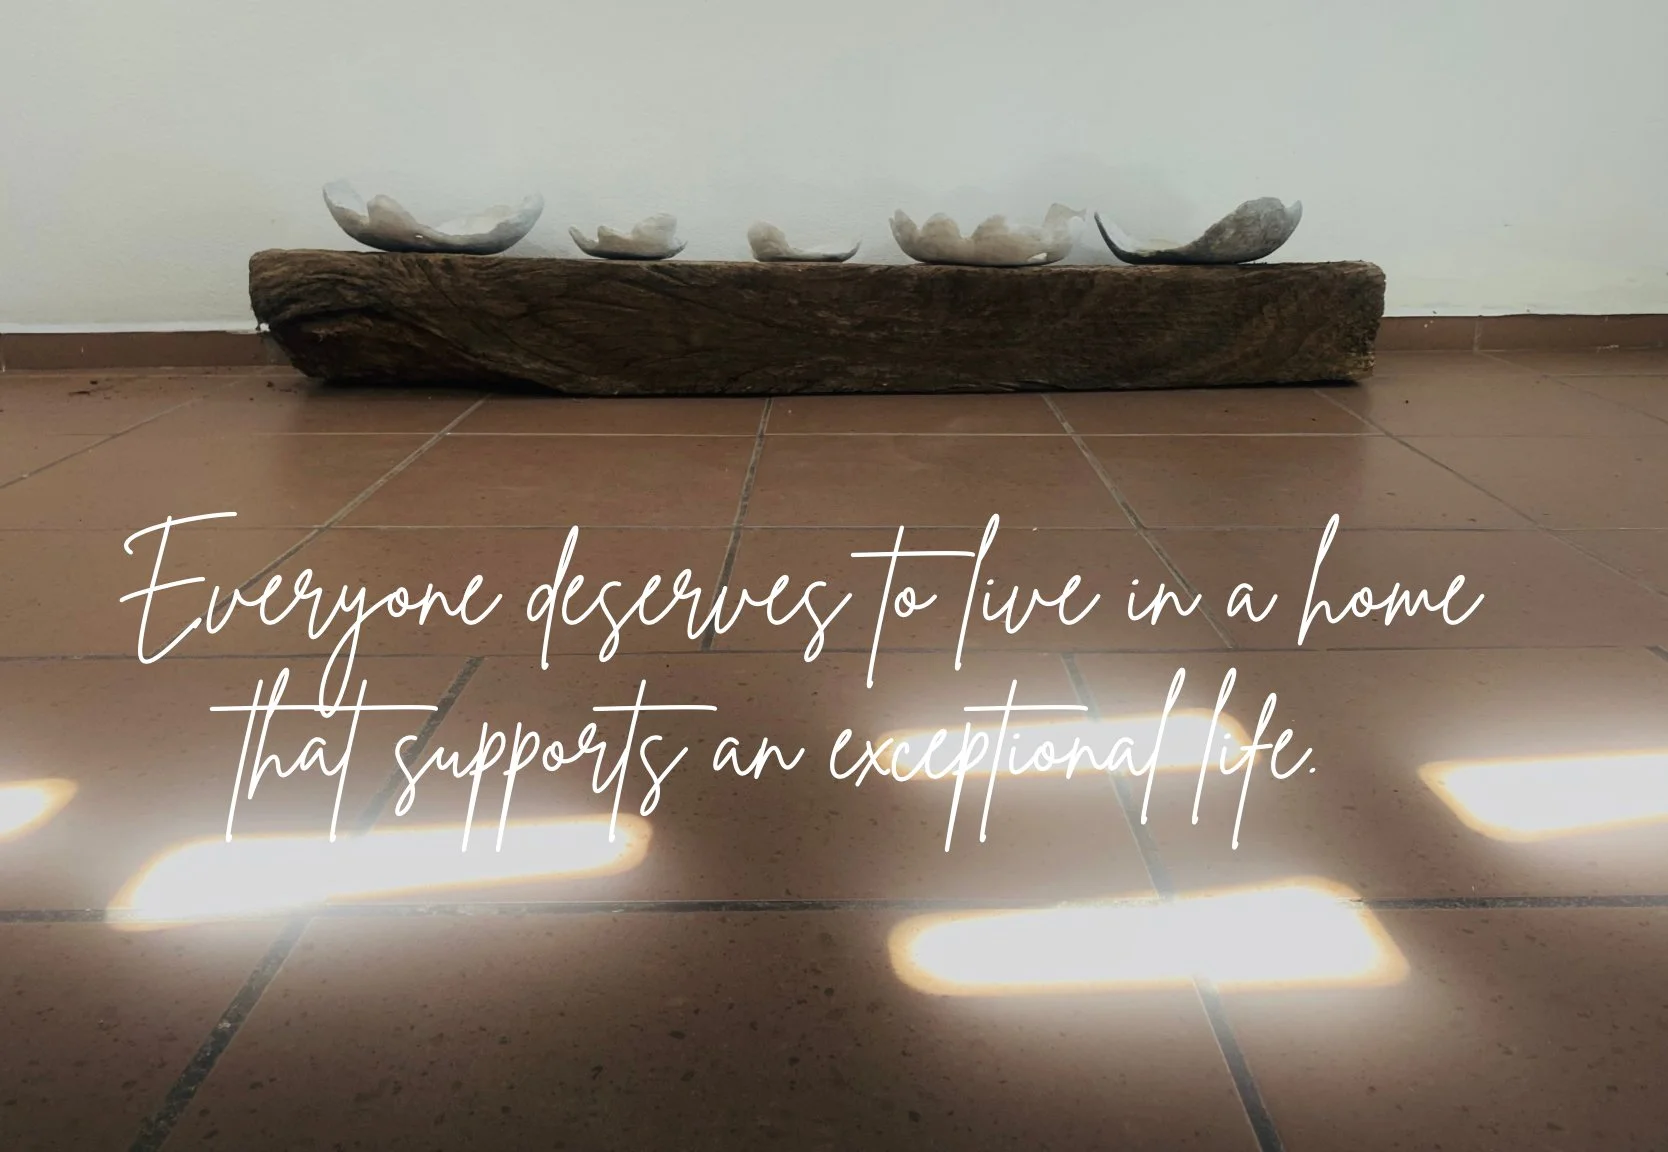 Everyone deserves to live in a home
that supports an exceptional life.